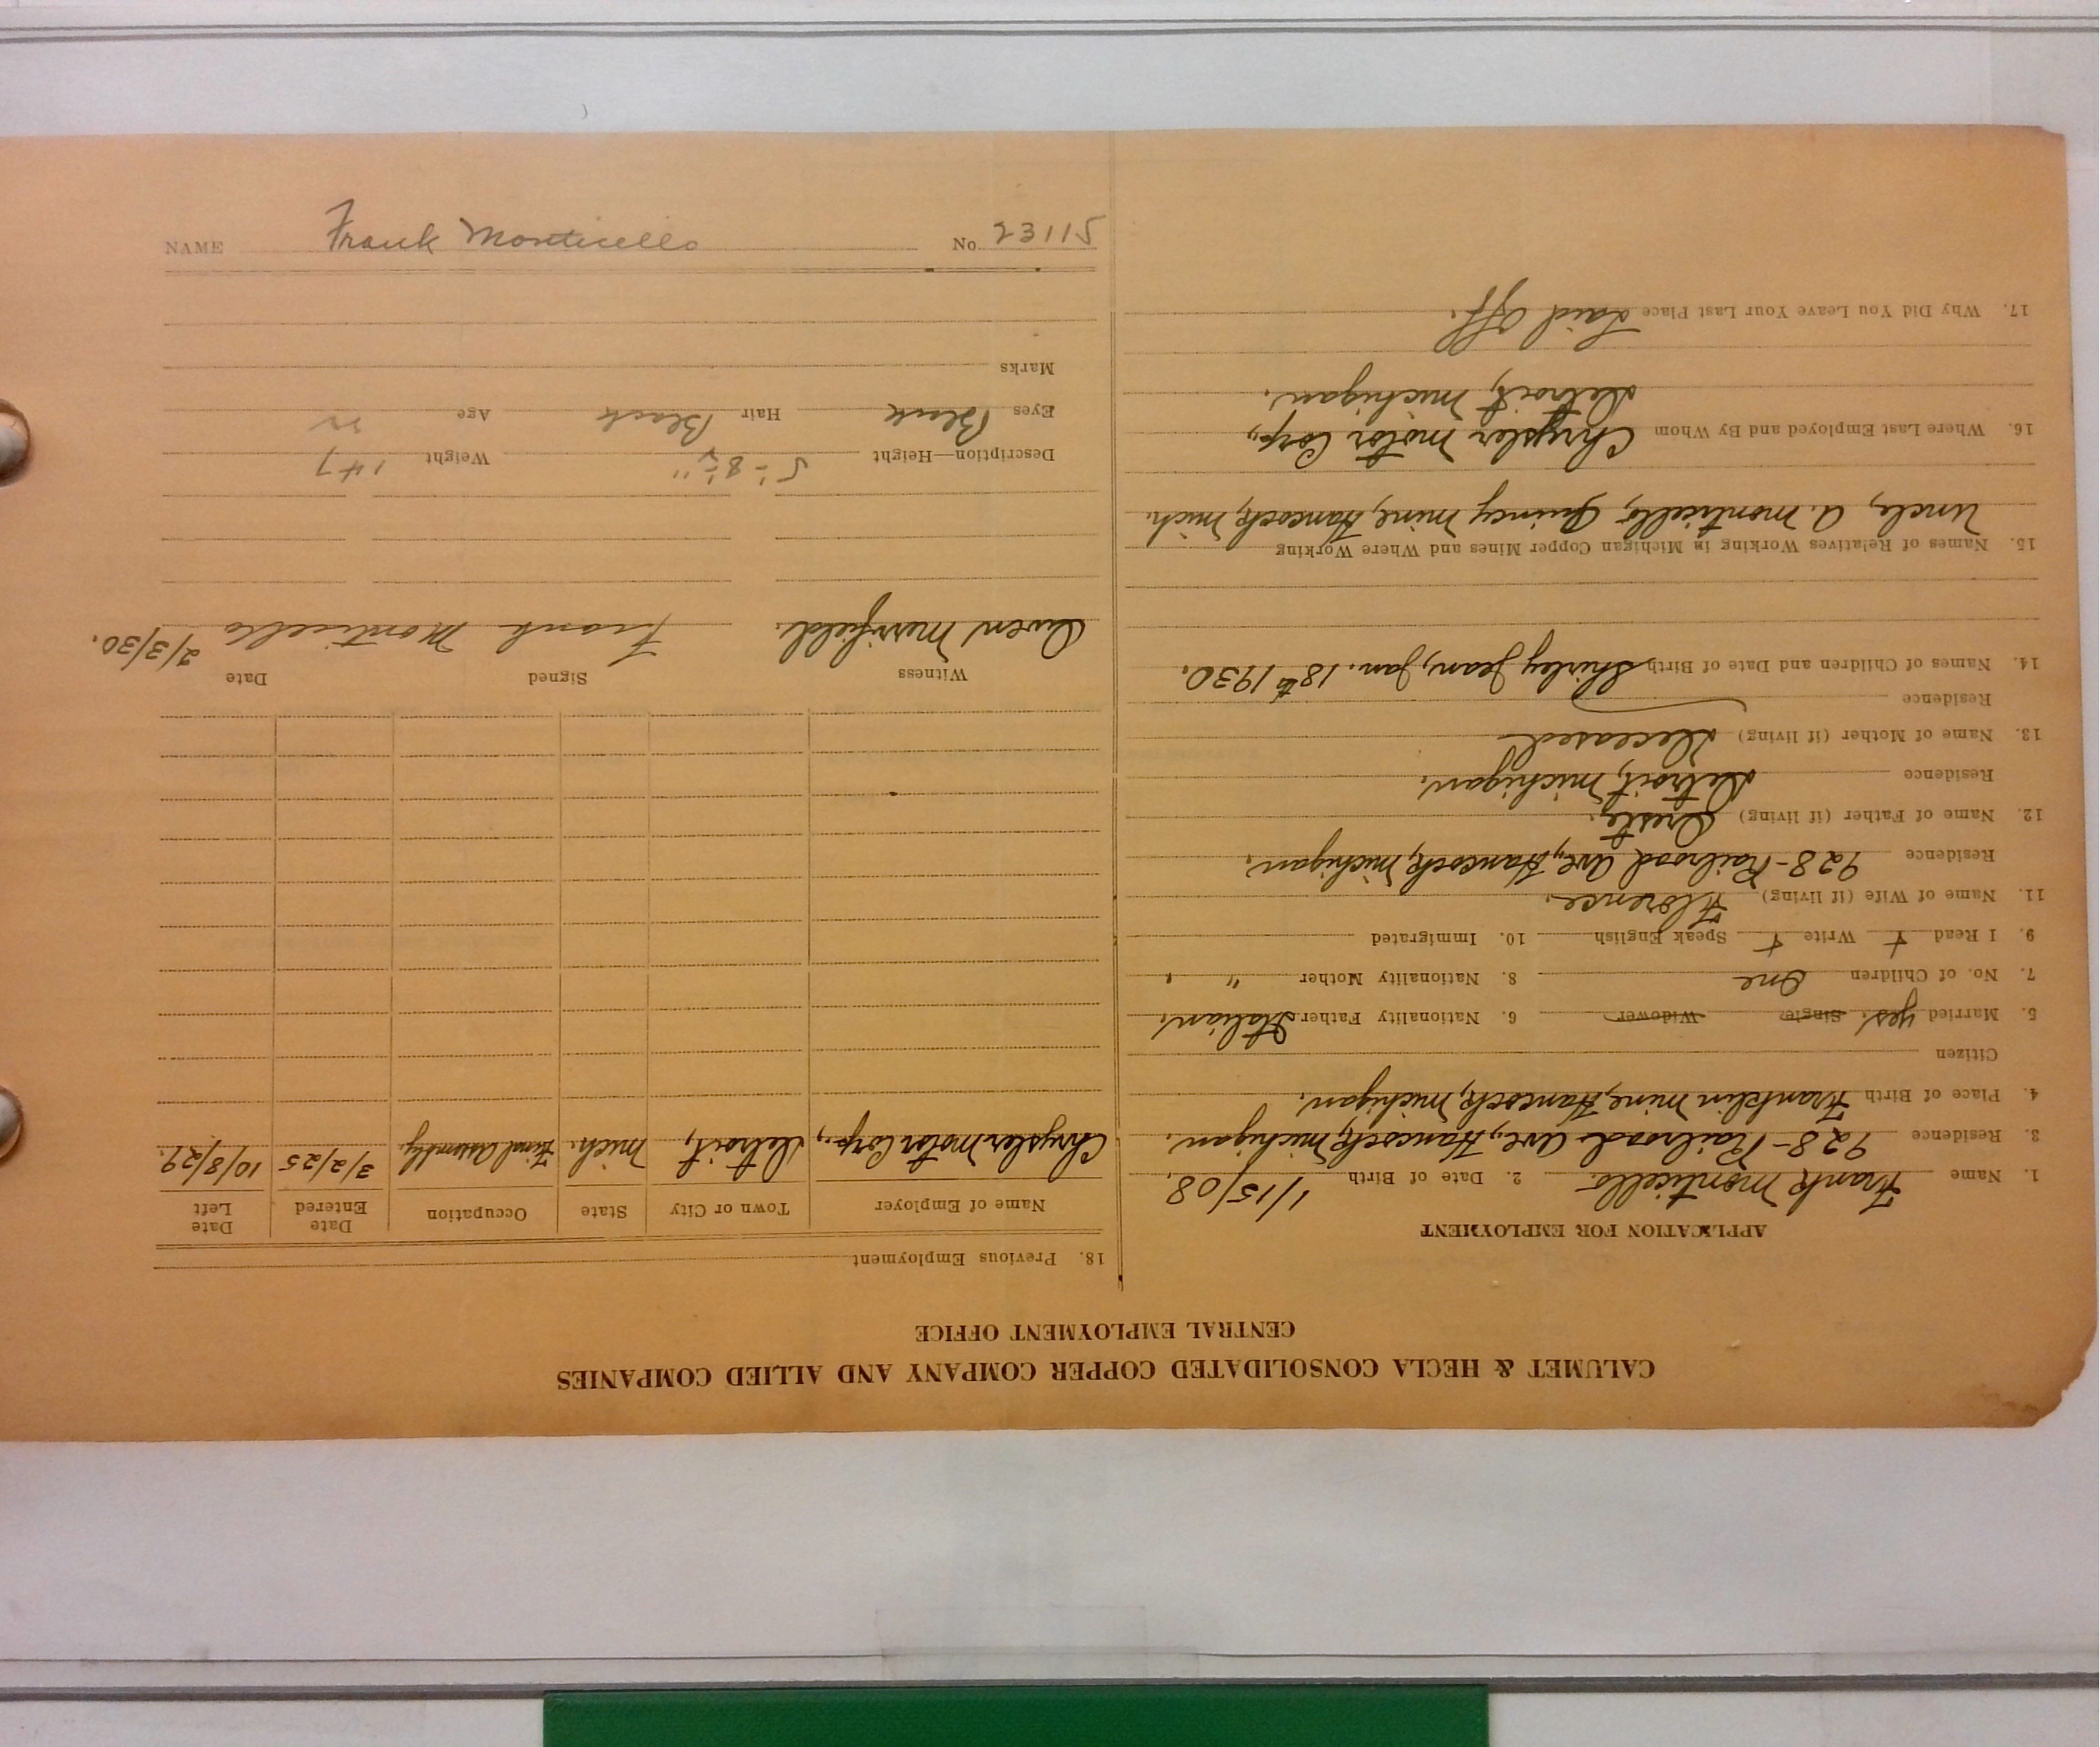 CALUMET & HECLA CONSOLIDATED COPPER COMPANY AND ALLIED COMPANIES
CENTRAL EMPLOYMENT OFFICE
APPLICATION FOR EMPLOYMENT
1. Name Frank Monticello 2. Date of Birth 1/15/08.
3. Residence 928-Railroad Ave., Hancock, Michigan.
4. Place of Birth Franklin Mine, Hancock, Michigan.
Citizen
5. Married yes. Single Widower 6. Nationality Father Italian.
7. No. of Children One 8. Nationality Mother " .
9. I Read + Write + Speak English 10. Immigrated
11. Name of Wife (if living) Florence.
Residence 928-Railroad Ave., Hancock, Michigan.
12. Name of Father (if living) Oreste.
Residence Detroit, Michigan.
13. Name of Mother (if living) Deceased
Residence
14. Names of Children and Date of Birth Shirley Jean, Jan. 18th 1930.
15. Names of Relatives Working in Michigan Copper Mines and Where Working
Uncle, A. Monticello, Quincy Mine, Hancock, Mich.
16. Where Last Employed and By Whom Chrysler Motor Corp.,
Detroit, Michigan.
17. Why Did You Leave Your Last Place Laid Off.
18. Previous Employment
Name of Employer Town or City State Occupation Date Entered Date Left
Chrysler Motor Corp., Detroit, Mich. Final Assembly. 3/2/25 10/8/29.
Witness Signed Date
Owen Merrifield. Frank Monticello 2/3/30.
Description—Height 5'-8½" Weight 147
Eyes Black Hair Black Age 22
Marks
NAME Frank Monticello No. 23115